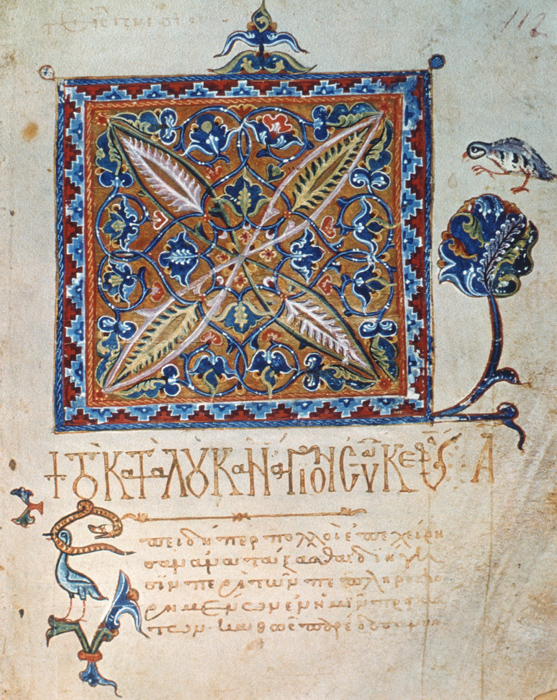 112
+ ΤΟ ΚΑΤΑ ΛΟΥΚΑΝ ΑΓΙΟΝ ΕΥΑ ΚΕΦ Α
Επειδήπερ πολλοὶ ἐπεχείρη
σαν ἀνατάξασθαι διήγη
σιν περὶ τῶν πεπληροφο
ρημένων ἐν ἡμῖν πραγμά
των· καθὼς παρέδοσαν